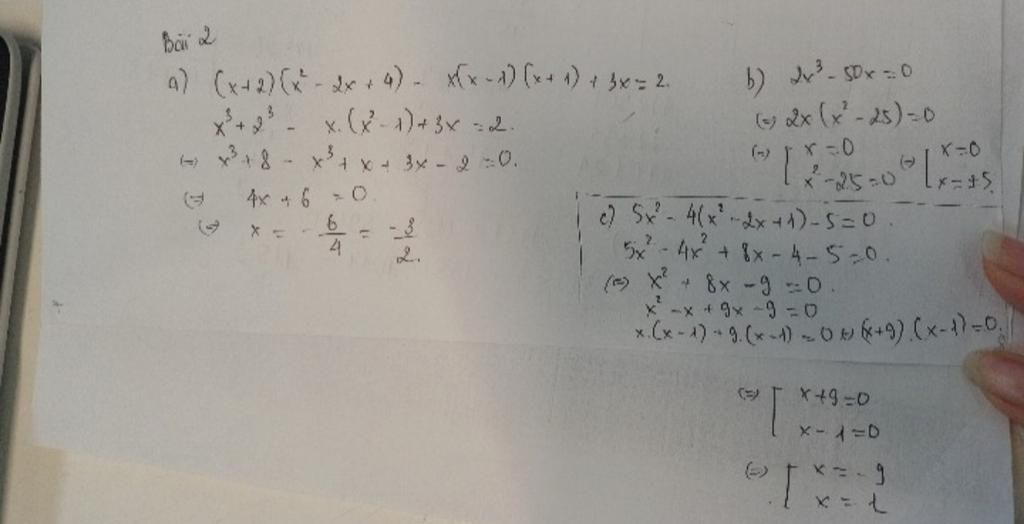 Bài 2
a) (x+2)(x² - 2x + 4) - x(x-1)(x+1) + 3x = 2.
x³ + 2³ - x.(x²-1)+3x = 2.
(=) x³ + 8 - x³ + x + 3x - 2 = 0.
(=) 4x + 6 = 0
(=) x = - 6/4 = -3/2.
b) 2x³ - 50x = 0
(=) 2x(x² - 25) = 0
(=) [ x = 0 (=) [ x = 0
x² - 25 = 0 x = ±5.
c) 5x² - 4(x² - 2x + 1) - 5 = 0.
5x² - 4x² + 8x - 4 - 5 = 0.
(=) x² + 8x - 9 = 0.
x² - x + 9x - 9 = 0
x.(x-1) + 9.(x-1) = 0 (=) (x+9).(x-1) = 0.
(=) [ x+9 = 0
x - 1 = 0
(=) [ x = - 9
x = 1